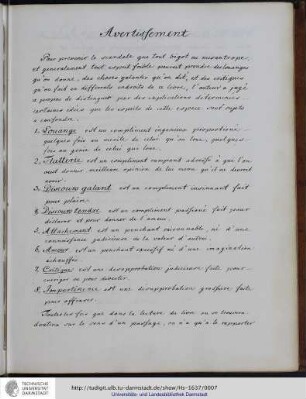 Avertissement
Pour prévenir le scandale que tout bigot ou misantrope,
et généralement tout esprit faible pourrait prendre des louanges
qu'on donne, des choses galantes qu'on dit, et des critiques
qu'on fait en différents endroits de ce livre, l'auteur a jugé
à propos de distinguer par des explications déterminées
certains mots que les esprits de cette espèce sont sujets
à confondre:
1. Louange est un compliment ingénieux proportionné
quelques fois au mérite de celui qu'on loue, quelques
fois au génie de celui qui loue.
2. Flatterie est un compliment rampant
meilleure opinion de lui même qu'il ne devrait
avoir.
3. Discours galand est un compliment insinuant fait
pour plaire.
4. Discours tendre est un compliment passioné fait pour
et pour donner de l'amour.
5. Attachement est un penchant raisonnable, né d'une
connaissance judicieuse de la valeur d'autrui.
6. Amour est un penchant né d'une imagination
échauffée
7. Critique est une desapprobation judicieuse faite pour
corriger ou pour
8. Impertinence est une desapprobation grossière faite
pour offenser.
Toutes les fois que dans la lecture de livre on se trouvera
douteux sur le sens d'un passage, on n'a qu'à la rapporter
TECHNISCHE
UNIVERSITÄT
DARMSTADT
http://tudigit.ulb.tu-darmstadt.de/show/Hs-1637/0007
Universitäts- und Landesbibliothek Darmstadt